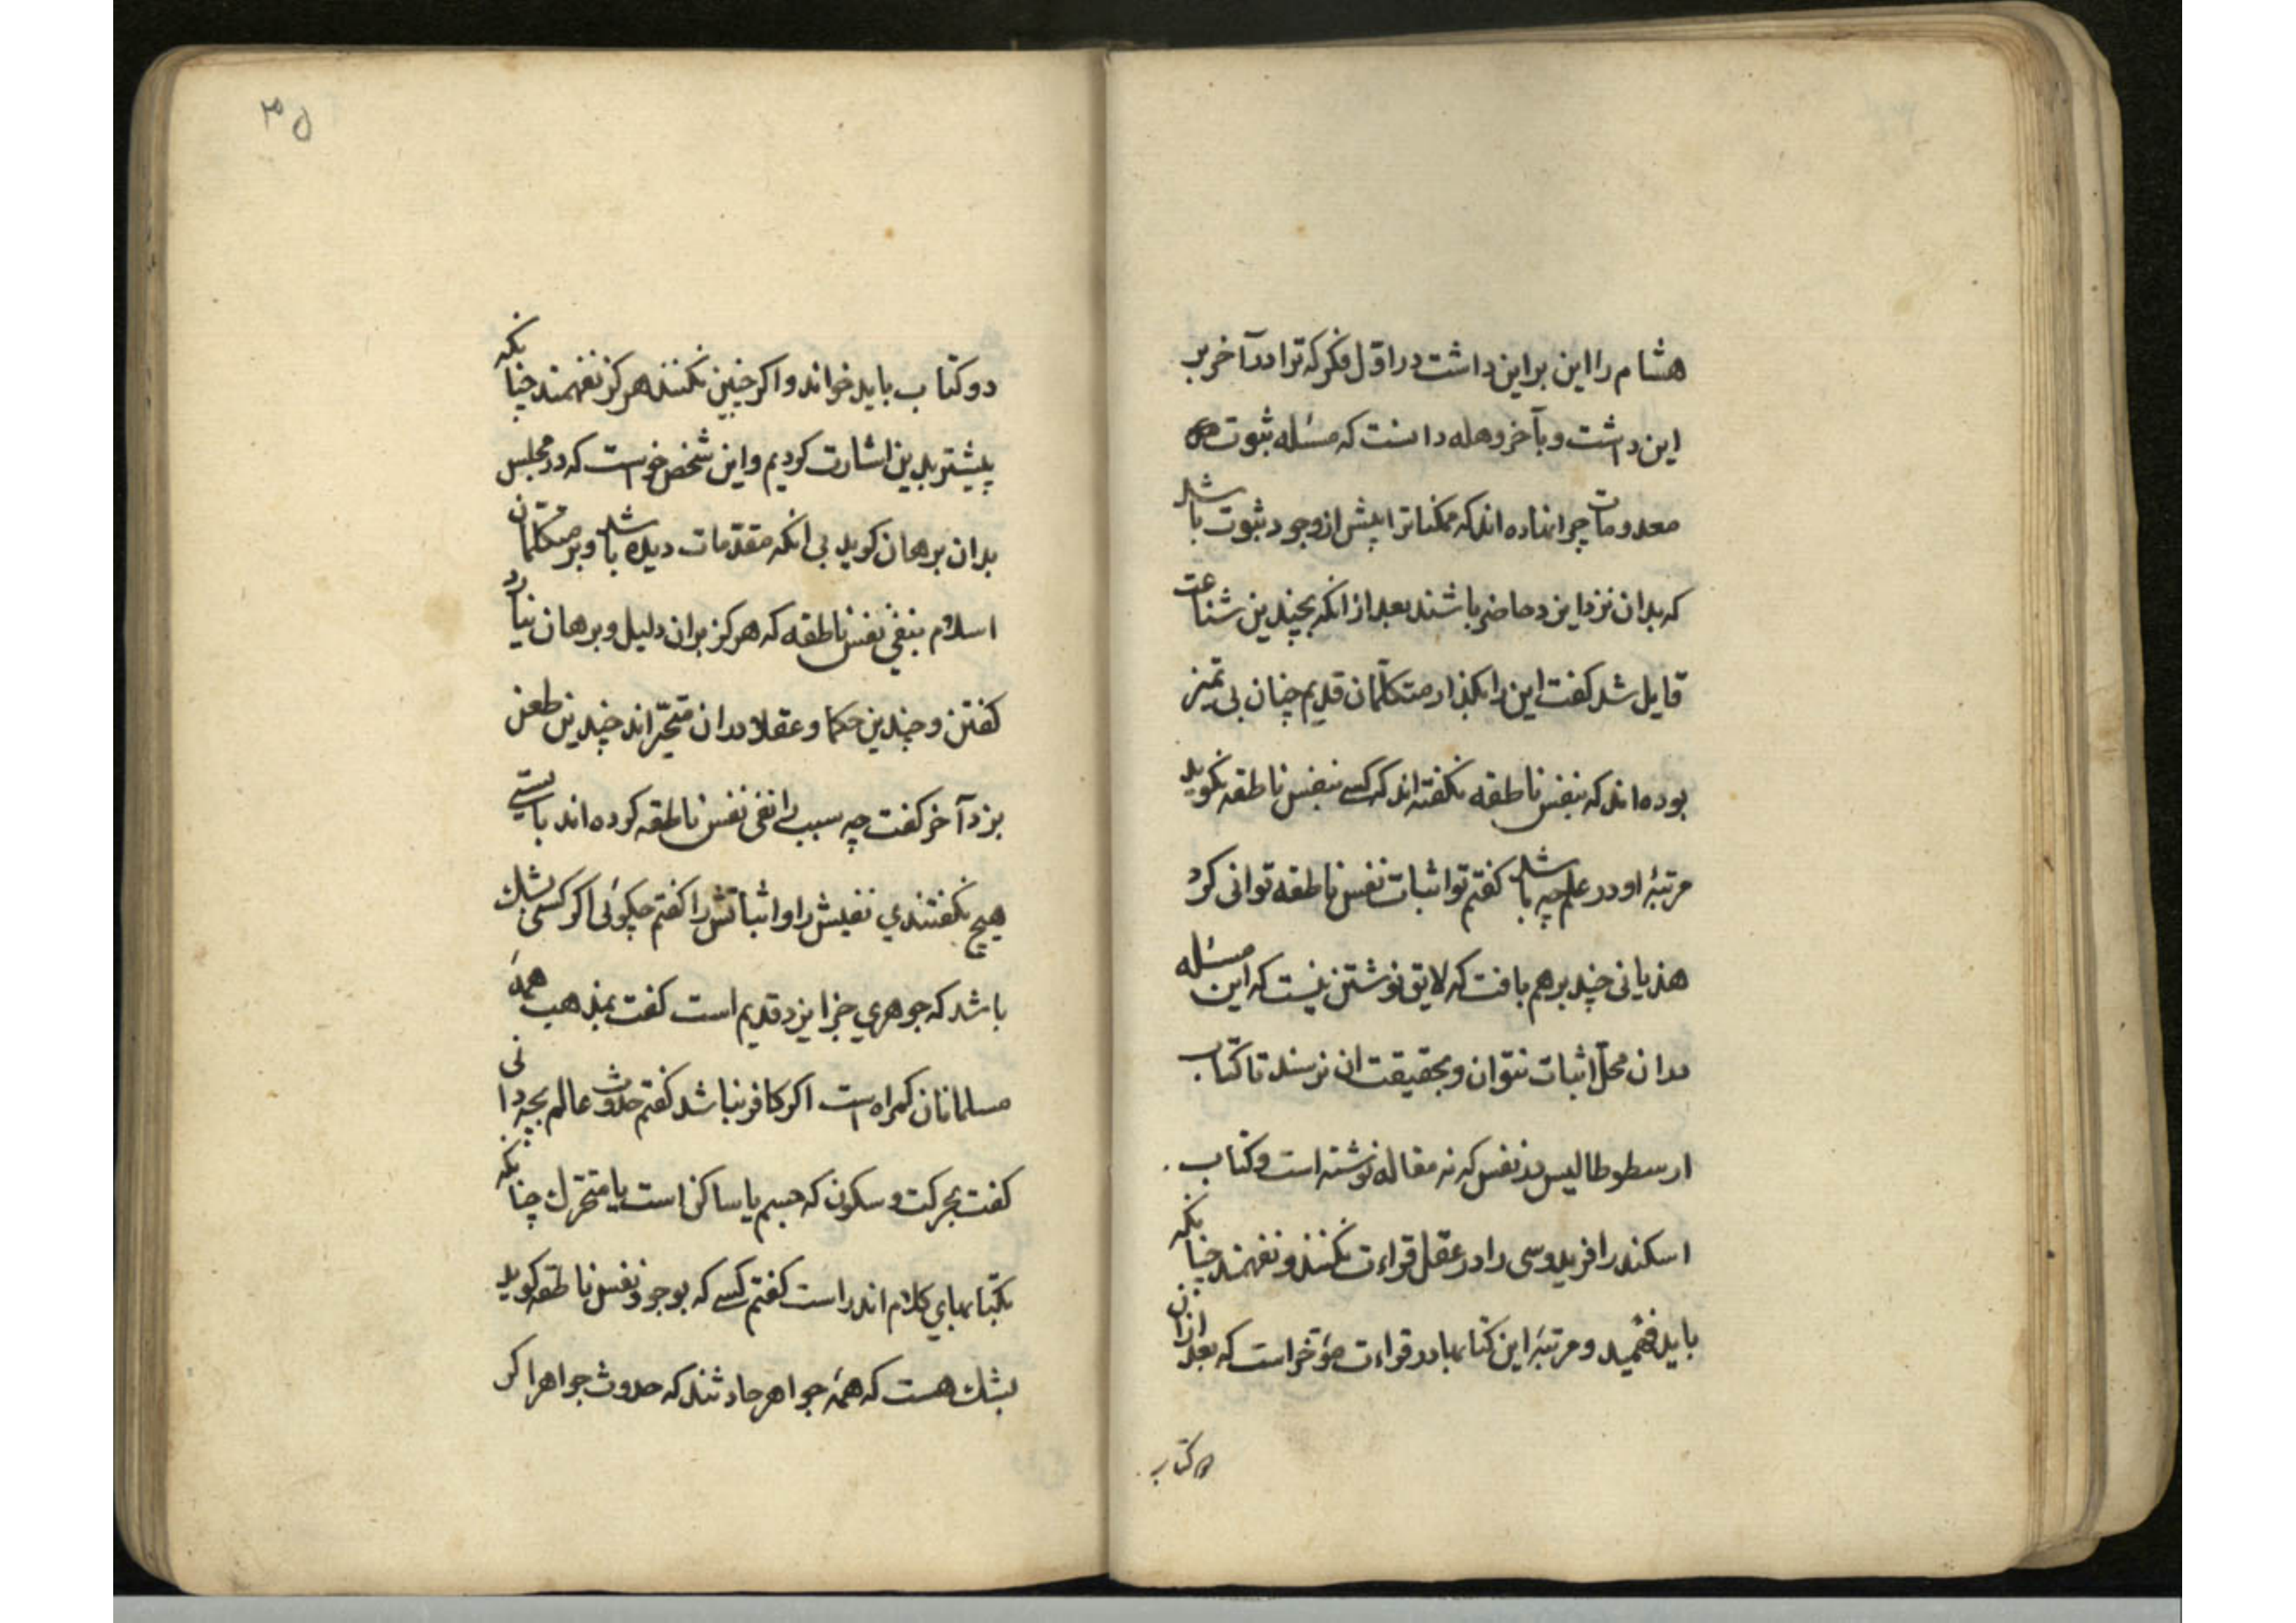 هشام را این براین داشت در اول فکر که ترا در آخر بر
این داشت و بآخر وهله دانست که مسئله ثبوت
معدومات چرا نهاده اند که ممکناترا پیش از وجود ثبوت باشد
که بدان نزد ایزد حاضر باشند بعد از انکه بچندین شناعت
قایل شد کفت این را بکذار متکلمان قدیم چنان بی تمیز
بوده اند که بنفس ناطقه نکفته اند که کسی بنفس ناطقه نکوید
مرتبهٔ او در علم چه باشد کفتم تو اثبات نفس ناطقه توانی کرد
هذیانی چند برهم بافت که لایق نوشتن نیست که این مسئله
بدان محل اثبات نتوان و بحقیقت ان نرسند تا کتاب
ارسطوطالیس در نفس که نه مقاله نوشته است و کتاب
اسکندر افریدوسی را در عقل قراءت نکنند و نفهمند چنانکه
باید فهمید و مرتبهٔ این کتابها در قراءت مؤخر است که بعد ازین
دو کتاب
۳۵
دو کتاب باید خواند و اکر چنین نکنند هرکز نفهمند چنانکه
پیشتر بدین اشارت کردیم و این شخص خواست که در مجلس
بدان برهان کوید بی انکه مقدمات دیده باشد و بر متکلمان
اسلام بنفی نفس ناطقه که هرکز بران دلیل و برهان نیارد
کفتن و چندین حکما و عقلا دران متحیراند چندین طعن
بزد آخر کفت چه سبب را نفی نفس ناطقه کرده اند بایستی
هیچ نکفتندی نفیش را و اثباتش را کفتم چکوئی اکر کسی بشک
باشد که جوهری جز ایزد قدیم است کفت بمذهب همهٔ
مسلمانان کمراه است اکر کافر نباشد کفتم حدوث عالم بچه دانی
کفت بحرکت و سکون که جسم یا ساکن است یا متحرک چنانکه
بکتابهای کلام اندر است کفتم کسی که بوجود نفس ناطقه کوید
بشک هست که همهٔ جواهر حادثند که حدوث جواهر اکر